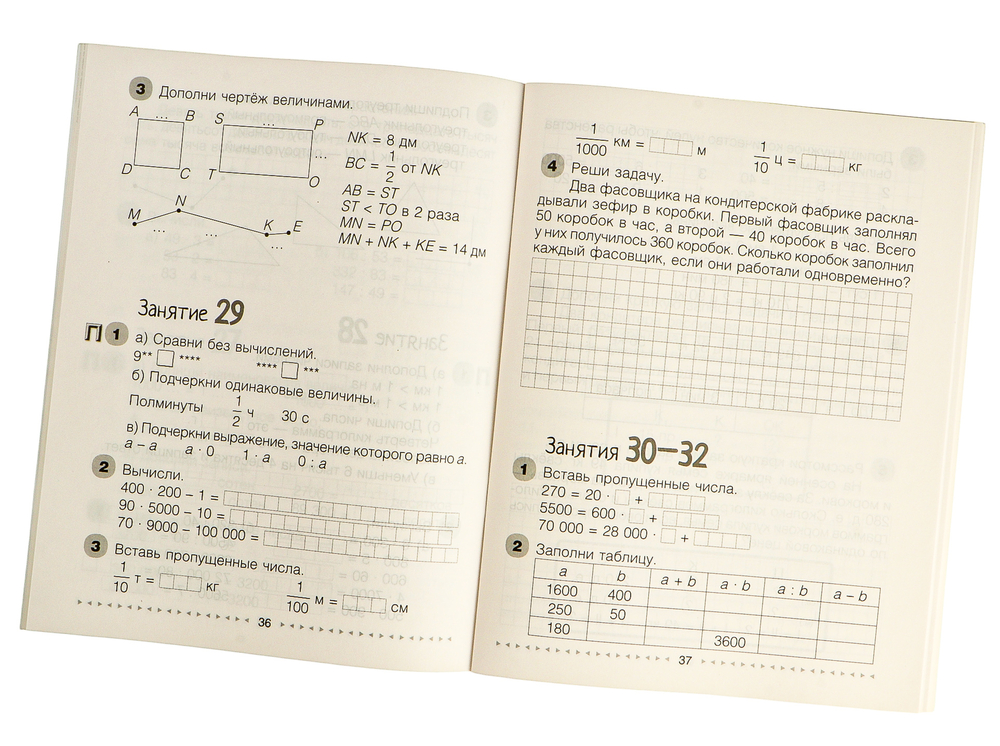 3 Дополни чертёж величинами.
A ... B S ... P
D C T O ...
NK = 8 дм
BC = 1/2 от NK
AB = ST
ST < TO в 2 раза
MN = PO
MN + NK + KE = 14 дм
M N K E
... ... ...
Занятие 29
П 1 а) Сравни без вычислений.
9** □ **** **** □ ***
б) Подчеркни одинаковые величины.
Полминуты 1/2 ч 30 с
в) Подчеркни выражение, значение которого равно a.
a – a a · 0 1 : a 0 : a
2 Вычисли.
400 · 200 – 1 =
90 · 5000 – 10 =
70 · 9000 – 100 000 =
3 Вставь пропущенные числа.
1/10 т = кг 1/100 м = см
36
1/1000 км = м 1/10 ц = кг
4 Реши задачу.
Два фасовщика на кондитерской фабрике раскла-
дывали зефир в коробки. Первый фасовщик заполнял
50 коробок в час, а второй — 40 коробок в час. Всего
у них получилось 360 коробок. Сколько коробок заполнил
каждый фасовщик, если они работали одновременно?
Занятия 30—32
1 Вставь пропущенные числа.
270 = 20 · □ +
5500 = 600 · □ +
70 000 = 28 000 · □ +
2 Заполни таблицу.
a b a + b a · b a : b a – b
1600 400
250 50
180 3600
37